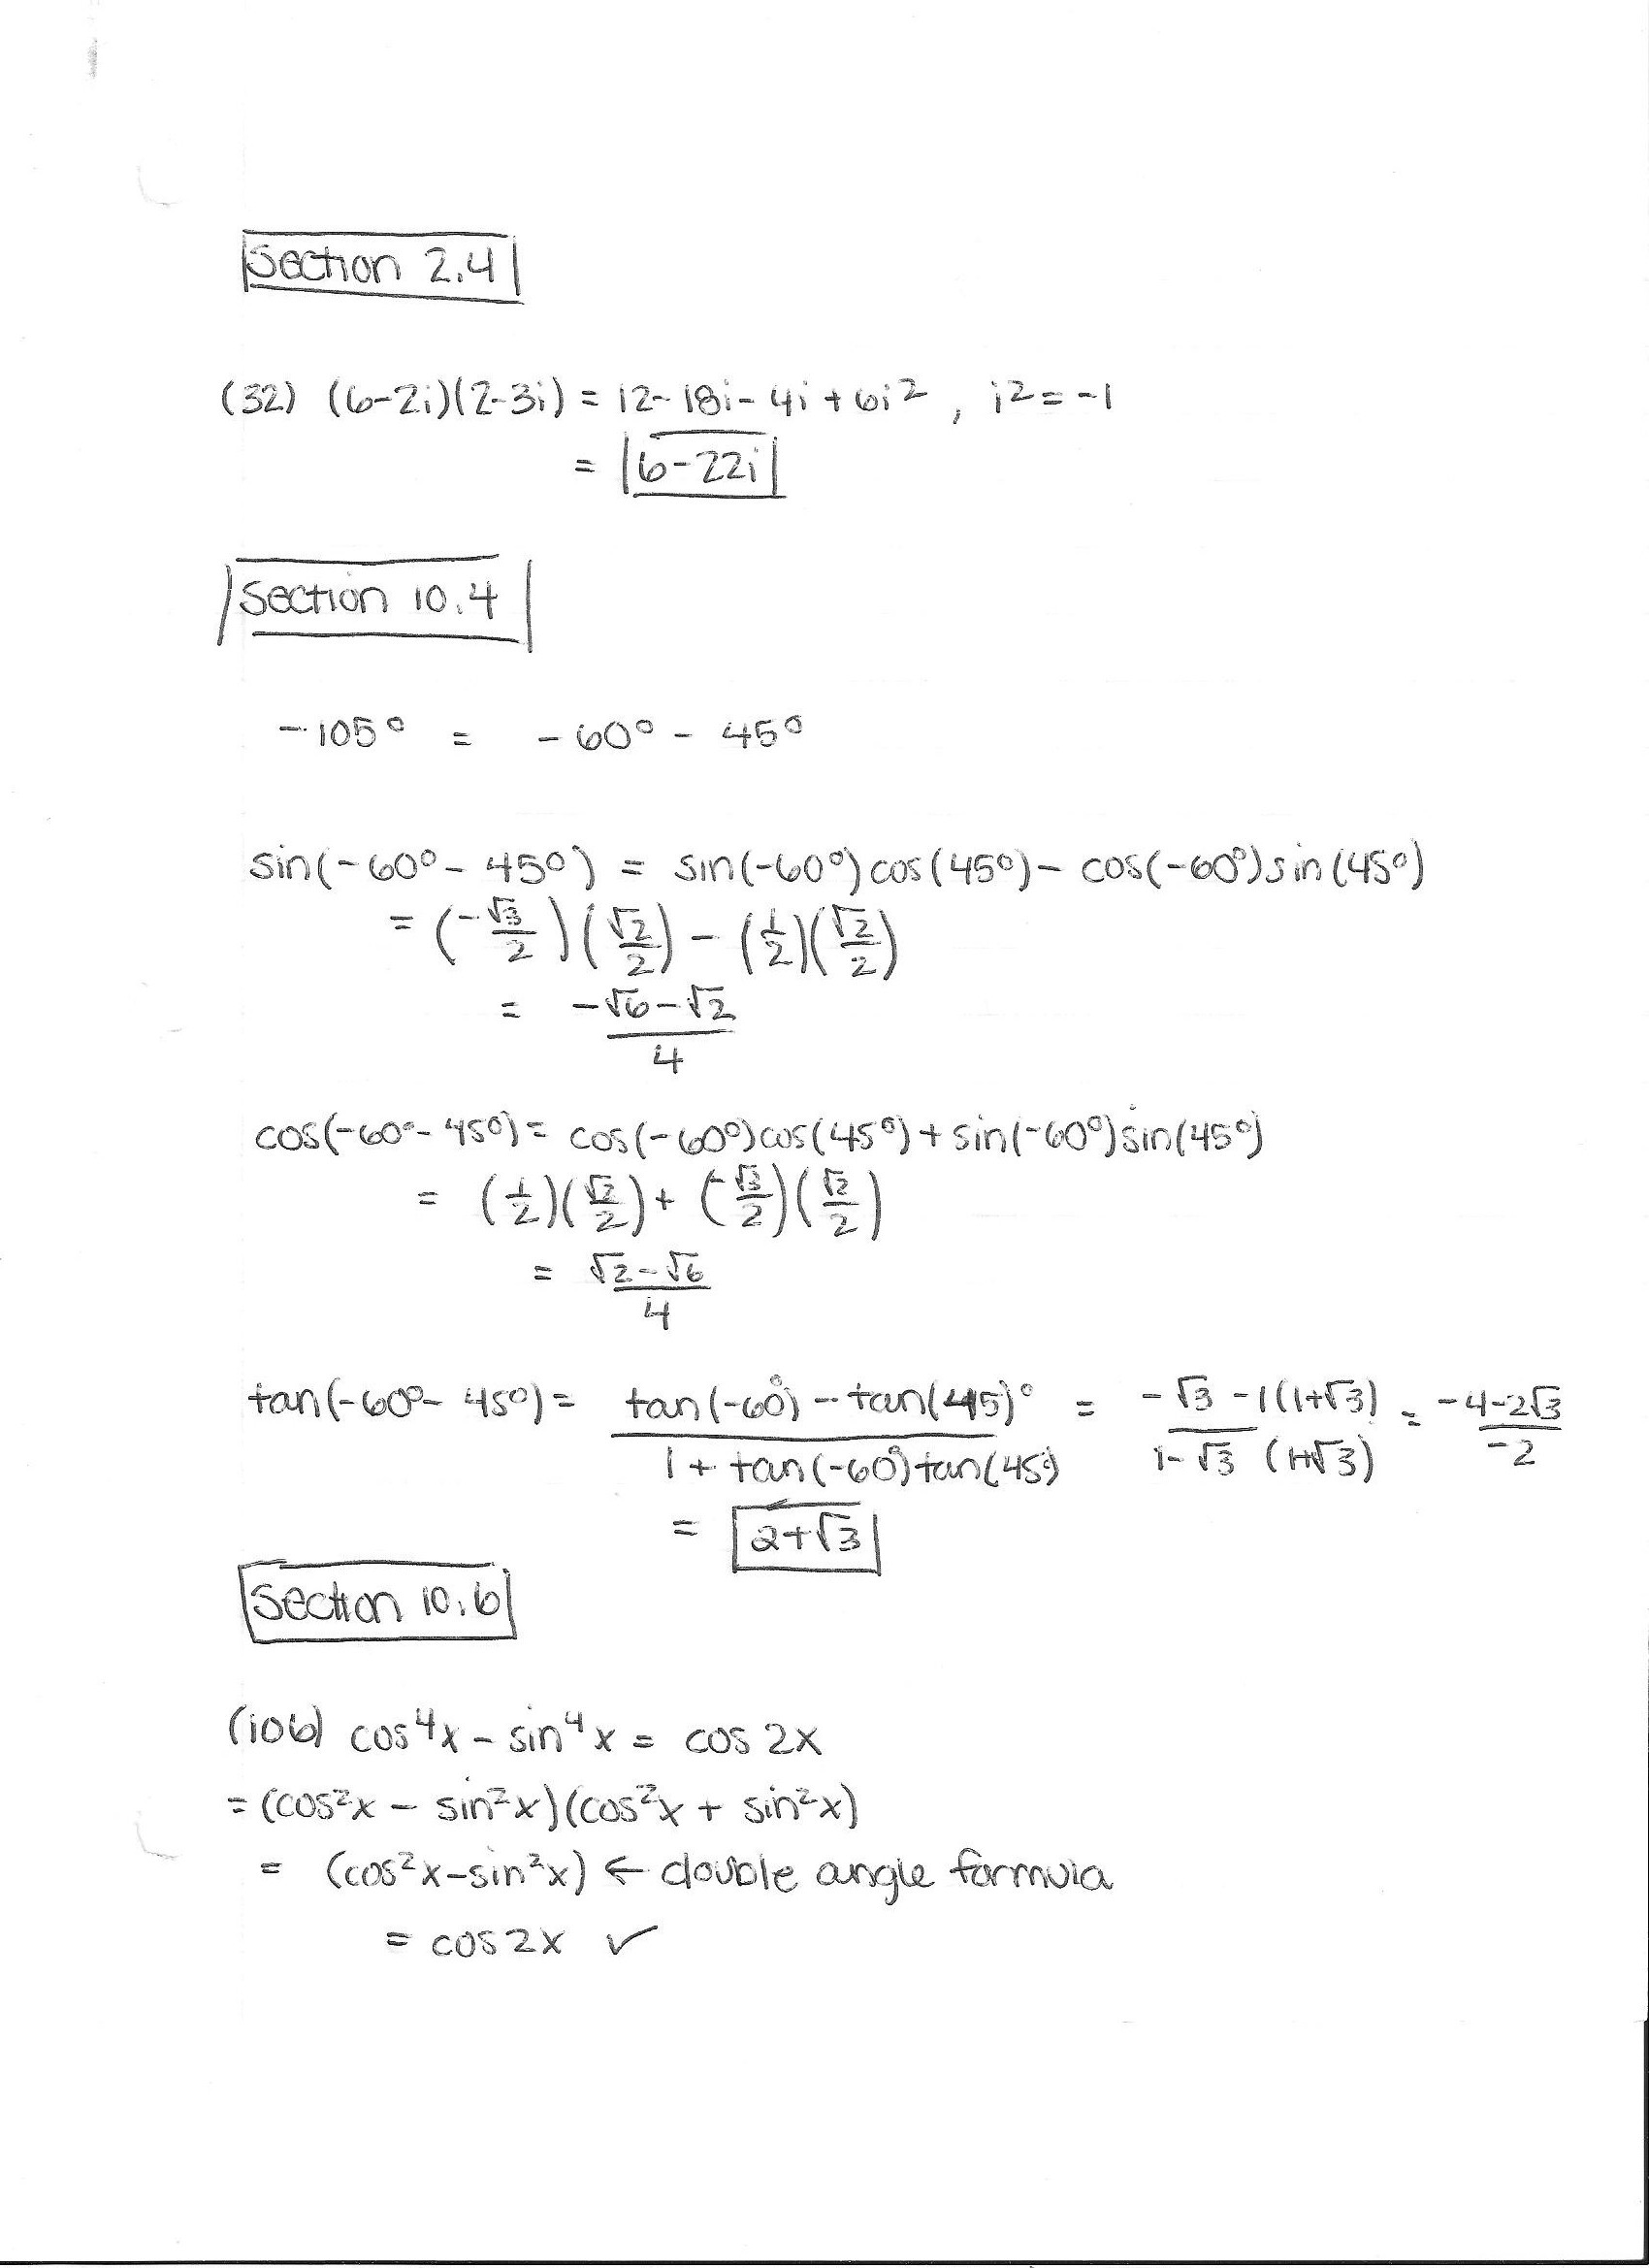 Section 2.4
(32) (6-2i)(2-3i) = 12-18i-4i+6i², i²=-1
= 6-22i
Section 10.4
-105° = -60° - 45°
sin(-60°-45°) = sin(-60°)cos(45°) - cos(-60°)sin(45°)
= (-√3/2)(√2/2) - (1/2)(√2/2)
= (-√6-√2)/4
cos(-60°-45°) = cos(-60°)cos(45°) + sin(-60°)sin(45°)
= (1/2)(√2/2) + (-√3/2)(√2/2)
= (√2-√6)/4
tan(-60°-45°) = (tan(-60°) - tan(45)°)/(1 + tan(-60°)tan(45°)) = (-√3 -1(1+√3))/(1-√3 (1+√3)) = (-4-2√3)/(-2)
= 2+√3
Section 10.6
(106) cos⁴x - sin⁴x = cos 2x
= (cos²x - sin²x)(cos²x + sin²x)
= (cos²x-sin²x) ← double angle formula
= cos2x ✓